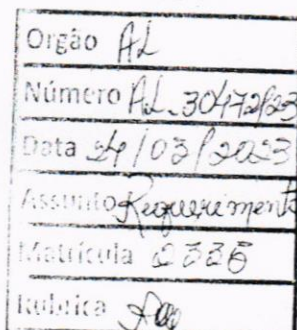 Orgão AL
Número AL-30472/23
Data 24/03/2023
Assunto Requerimento
Matrícula 2336
Rubrica